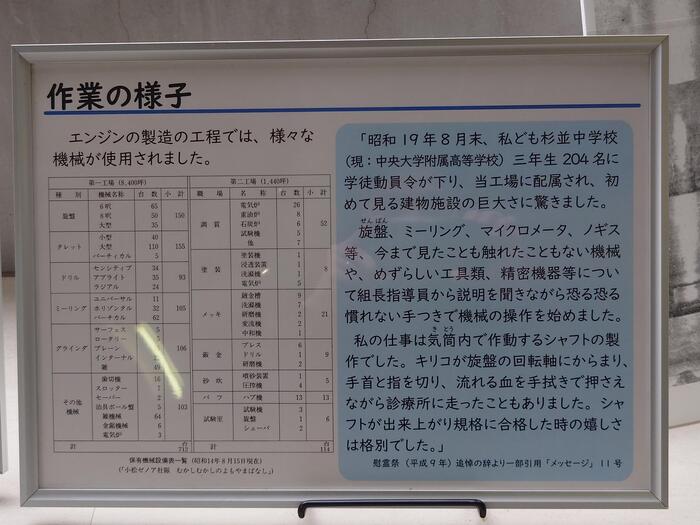 作業の様子
エンジンの製造の工程では、様々な
機械が使用されました。
第一工場(8,400坪)
種別 機械名称 台数 小計
旋盤 6呎 65 150
8呎 50
大型 35
タレット 小型 40 155
大型 110
バーチカル 5
ドリル センシティブ 34 93
アプライト 35
ラジアル 24
ミーリング ユニバーサル 11 105
ホリゾンタル 32
バーチカル 62
グラインダ サーフェス 5 106
ロータリー
プレーン
インターナル
雑 49
その他機械 歯切機 16 103
スロッター 7
セーバー 2
治具ボール盤 5
雑機械 64
金鋸機械 6
電気炉 3
計 台 712
第二工場(1,440坪)
職場 名称 台数 小計
調質 電気炉 26 52
重油炉 8
石炭炉 6
試験機 5
他 7
塗装 塗装機 1 8
浸透装置 1
洗滌機 1
電気炉 5
メッキ 鍍金槽 9 21
洗滌機 7
研磨機 2
変流機 2
中和機 1
鈑金 プレス 6 9
ドリル 1
研磨機 2
砂吹 噴砂装置 1 5
圧搾機 4
バフ バフ機 13 13
試験室 試験機 3 6
旋盤 1
シェーバ 2
計 台 114
保有機械設備表一覧(昭和14年8月15日現在)
(「小松ゼノア社報 むかしむかしのよもやまばなし」)
「昭和19年8月末、私ども杉並中学校
(現:中央大学附属高等学校)三年生204名に
学徒動員令が下り、当工場に配属され、初
めて見る建物施設の巨大さに驚きました。
旋盤、ミーリング、マイクロメータ、ノギス
等、今まで見たことも触れたこともない機械
や、めずらしい工具類、精密機器等につい
て組長指導員から説明を聞きながら恐る恐る
慣れない手つきで機械の操作を始めました。
私の仕事は気筒内で作動するシャフトの製
作でした。キリコが旋盤の回転軸にからまり、
手首と指を切り、流れる血を手拭きで押さえ
ながら診療所に走ったこともありました。シャ
フトが出来上がり規格に合格した時の嬉しさ
は格別でした。」
慰霊祭(平成9年)追悼の辞より一部引用「メッセージ」11号